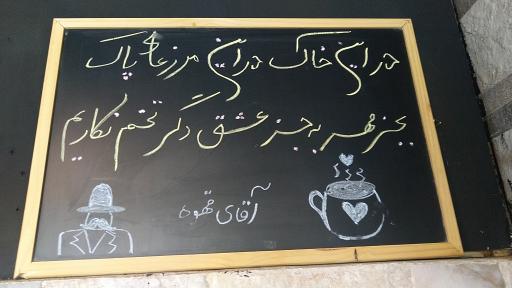 در این خاک در این مزرعه پاک
بجز مهر به جز عشق دگر تخم نکاریم
آقای قهوه